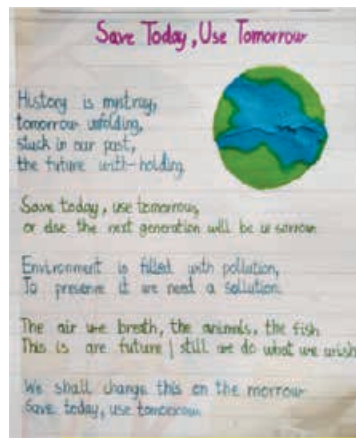 Save Today, Use Tomorrow
History is mystray,
tomorrow unfolding,
stuck in our past,
the future with-holding
Save today, use tomorrow,
or else the next generation will be in sorrow
Environment is filled with pollution,
To preserve it we need a sollution.
The air we breath, the animals, the fish
This is are future | still we do what we wish
We shall change this on the morrow
Save today, use tomorrow.